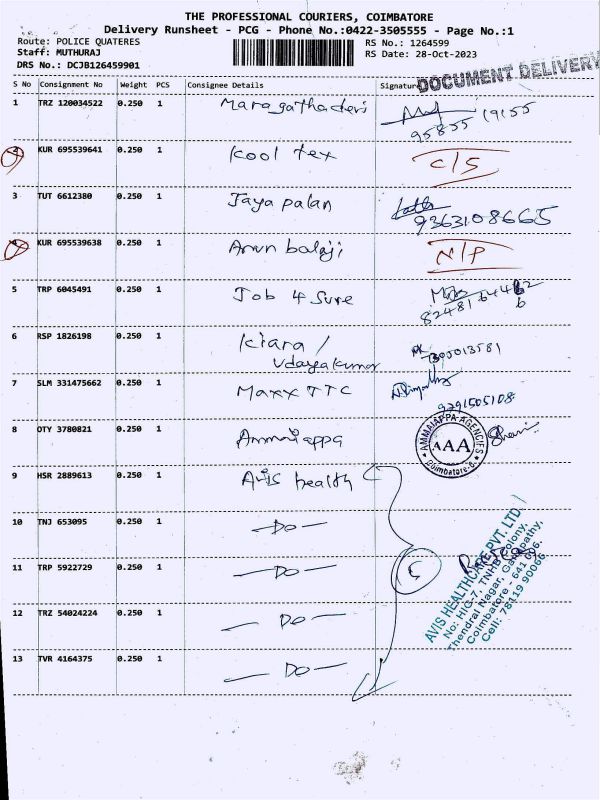 THE PROFESSIONAL COURIERS, COIMBATORE
Delivery Runsheet - PCG - Phone No.:0422-3505555 - Page No.:1
Route: POLICE QUATERES
RS No.: 1264599
Staff: MUTHURAJ
RS Date: 28-Oct-2023
DRS No.: DCJB126459901
DOCUMENT DELIVERY
S No Consignment No Weight PCS Consignee Details Signature
1 TRZ 120034522 0.250 1 Maragathadevi
95855 19155
2 KUR 695539641 0.250 1 Kool tex C/S
3 TUT 6612380 0.250 1 Jaya palan
9363108665
4 KUR 695539638 0.250 1 Arun balaji N/P
5 TRP 6045491 0.250 1 Job 4 Sure
6 RSP 1826198 0.250 1 Kiara /
Udayakumar
7 SLM 331475662 0.250 1 Maxx TTC
9291505108
8 OTY 3780821 0.250 1 Ammaiappa
AMMAIAPPA AGENCIES
AAA
Coimbatore-6.
9 HSR 2889613 0.250 1 Avis health
10 TNJ 653095 0.250 1 — Do —
11 TRP 5922729 0.250 1 — Do —
12 TRZ 54024224 0.250 1 — Do —
13 TVR 4164375 0.250 1 — Do —
5
AVIS HEALTHCARE PVT. LTD.
No: HIG-7, TNHB Colony,
Thendral Nagar, Ganapathy,
Coimbatore - 641 006.
Cell: 78119 90066